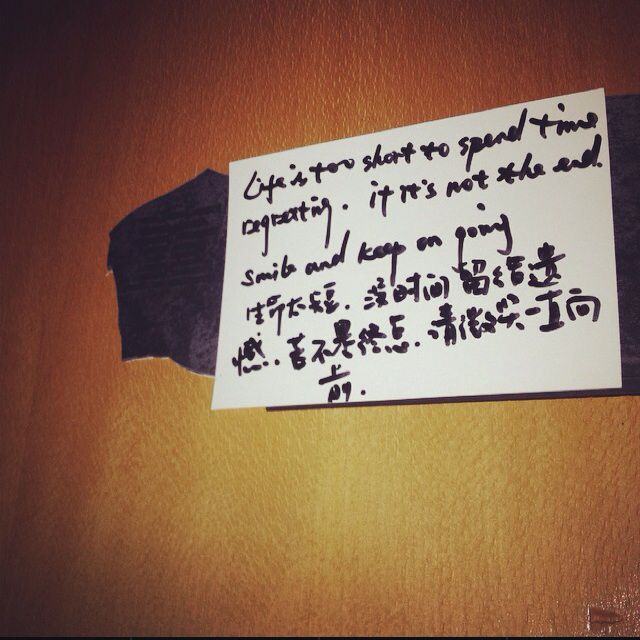 Life is too short to spend time
regretting. if it's not the end.
smile and keep on going
生命太短. 没时间留给遗
憾. 若不是终点. 请微笑一直向
前.